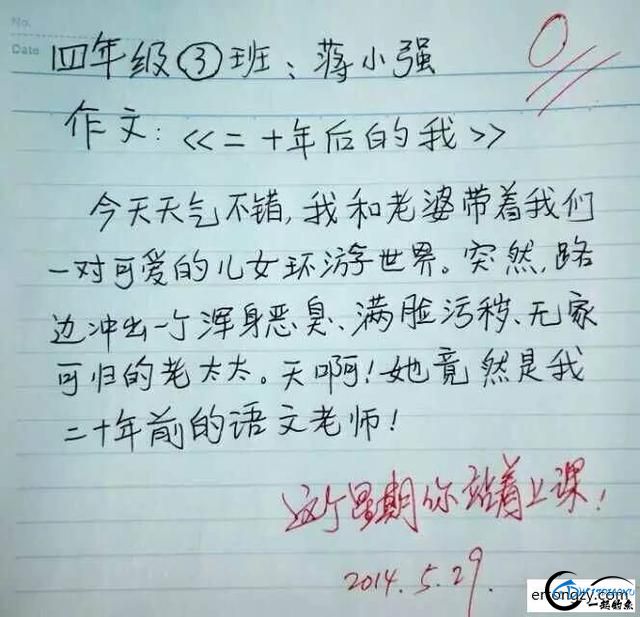 No.
Date
四年级③班：蒋小强
0
作文：《二十年后的我》
今天天气不错，我和老婆带着我们
一对可爱的儿女环游世界。突然，路
边冲出一个浑身恶臭、满脸污秽、无家
可归的老太太。天啊！她竟然是我
二十年前的语文老师！
这个星期你站着上课！
2014.5.29.
一起钓鱼